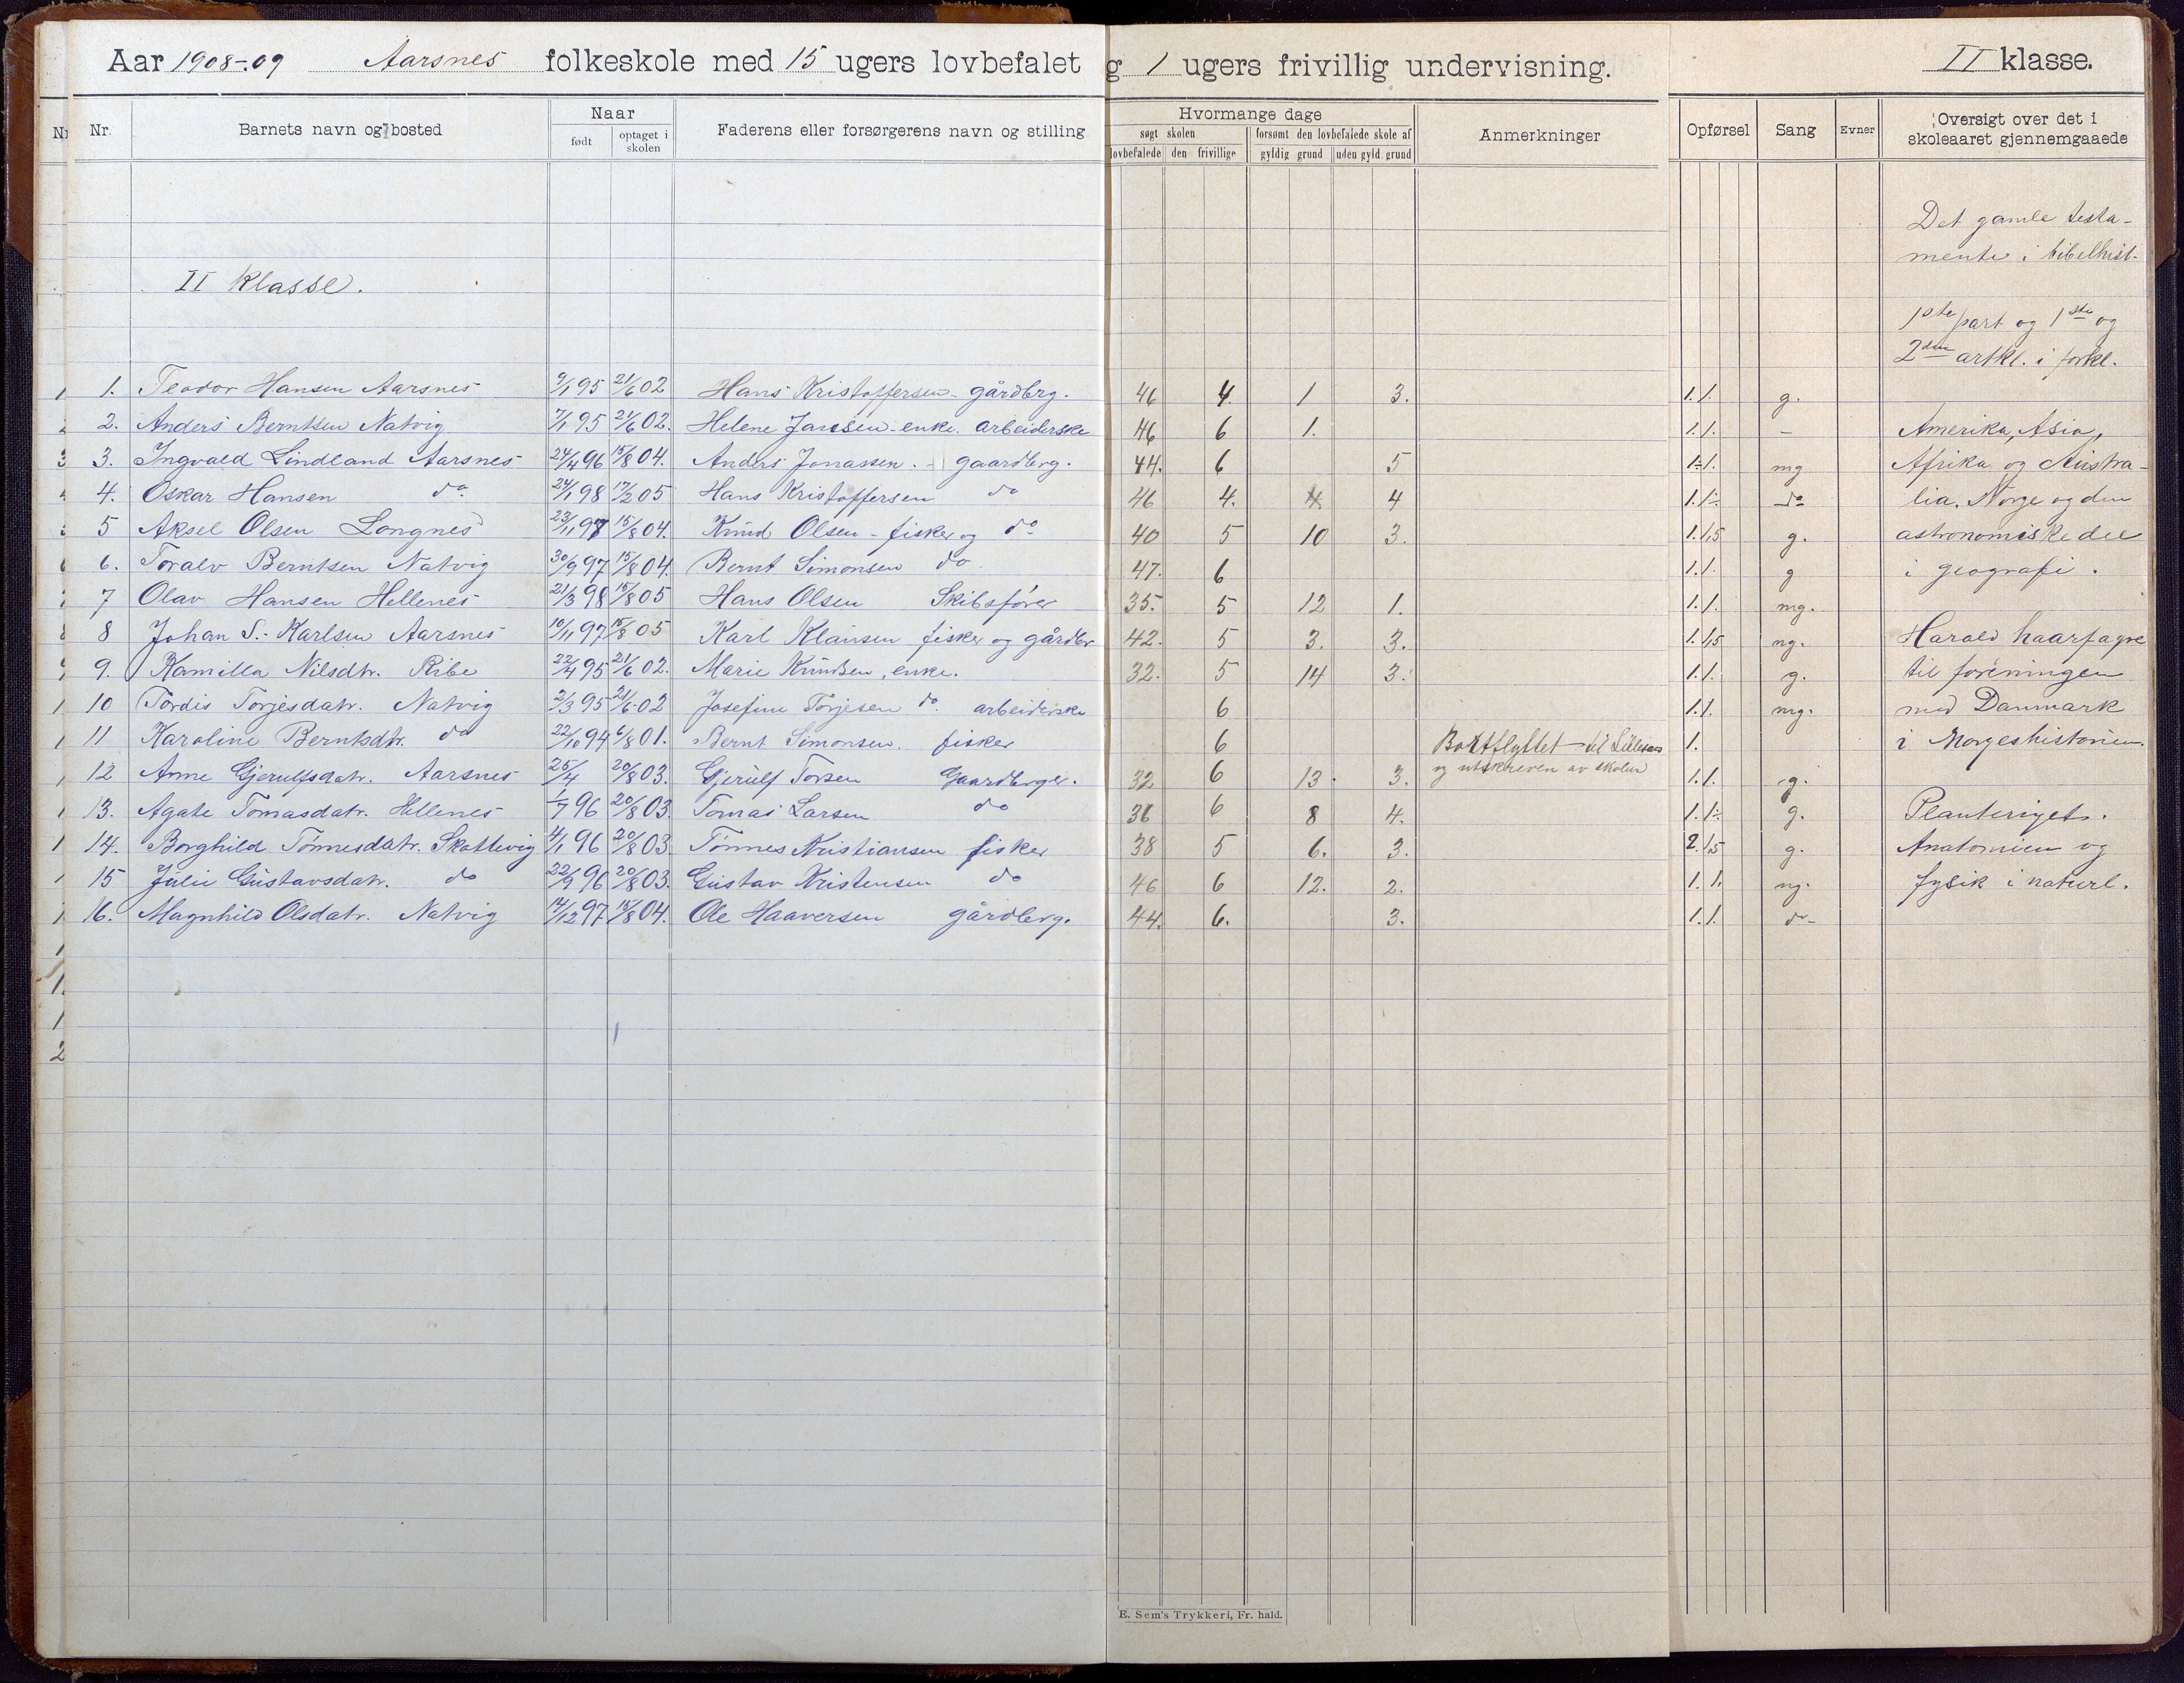 Aar 1908-09 Aarsnes folkeskole med 15 ugers lovbefalet g 1 ugers frivillig undervisning. II klasse.
Nr. Barnets navn og bosted Naar født optaget i skolen Faderens eller forsørgerens navn og stilling
Hvormange dage
søgt skolen forsømt den lovbefalede skole af
lovbefalede den frivillige gyldig grund uden gyld. grund
Anmerkninger Opførsel Sang Evner Oversigt over det i skoleaaret gjennemgaaede
II klasse.
1. Teodor Hansen Aarsnes 9/1 95 21/6 02 Hans Kristoffersen - gårdbrg. 46 4. 1 3. 1. 1. g.
2. Anders Berntsen Natvig 7/1 95 21/6 02. Helene Jansen - enke. arbeiderske 46 6 1. 1. 1. -
3. Ingvald Lindland Aarsnes 24/4 96 15/8 04. Anders Jonassen. - gaardbrg. 44. 6 5 1÷ 1. mg
4. Oskar Hansen do 24/1 98 17/2 05 Hans Kristoffersen do 46 4. 4 1. 1÷ do
5 Aksel Olsen Longnes 23/11 97 15/8 04. Knud Olsen - fisker og do 40 5 10 3. 1. 1,5 g.
6. Toralv Berntsen Natvig 30/9 97 15/8 04. Bernt Simonsen do 47. 6 1. 1. g
7 Olav Hansen Hellenes 21/3 98 15/8 05 Hans Olsen Skibsfører 35. 5 12 1. 1. 1. mg.
8 Johan S.- Karlsen Aarsnes 10/11 97 15/8 05 Karl Klausen fisker og gårdbr 42. 5 3. 3. 1. 1,5 ng.
9. Kamilla Nilsdtr. Ribe 22/4 95 21/6 02. Marie Knudsen, enke. 32. 5 14 3. 1. 1. g.
10 Tordis Torjesdatr. Natvig 2/3 95 21/6 02 Josefine Torjesen do arbeiderske 6 1. 1. mg.
11 Karoline Berntsdtr. do 22/10 94 6/8 01. Bernt Simonsen. fisker 6 Bortflyttet til Lillesand 1.
og utskreven av skolen
12 Anne Gjerulfsdatr. Aarsnes 25/4 20/8 03. Gjerulf Torsen Gaardbrger. 32 6 13. 3. 1. 1. g.
13. Agate Tomasdatr. Hellenes 1/7 96 20/8 03 Tomas Larsen do 36 6 8 4. 1. 1÷ g.
14. Borghild Tønnesdatr. Skottevig 4/1 96 20/8 03 Tønnes Kristiansen fisker 38 5 6. 3. 2. 1,5 g.
15 Julie Gustavsdatr. do 22/9 96 20/8 03. Gustav Kristensen do 46 6 12. 2. 1. 1. ng.
16. Magnhild Olsdatr. Natvig 14/12 97 15/8 04. Ole Haaversen gårdbrg. 44. 6. 3. 1. 1. do
Det gamle testa-
mente i bibelhist.
1ste part og 1ste og
2den artkl. i forkl.
Amerika, Asia,
Afrika og Austra-
lia. Norge og den
astronomiske del
i geografi.
Harald haarfagre
til foreningen
med Danmark
i Norgeshistorien.
Planteriget.
Anatomien og
fysik i naturl.
E. Sem's Trykkeri, Fr. hald.